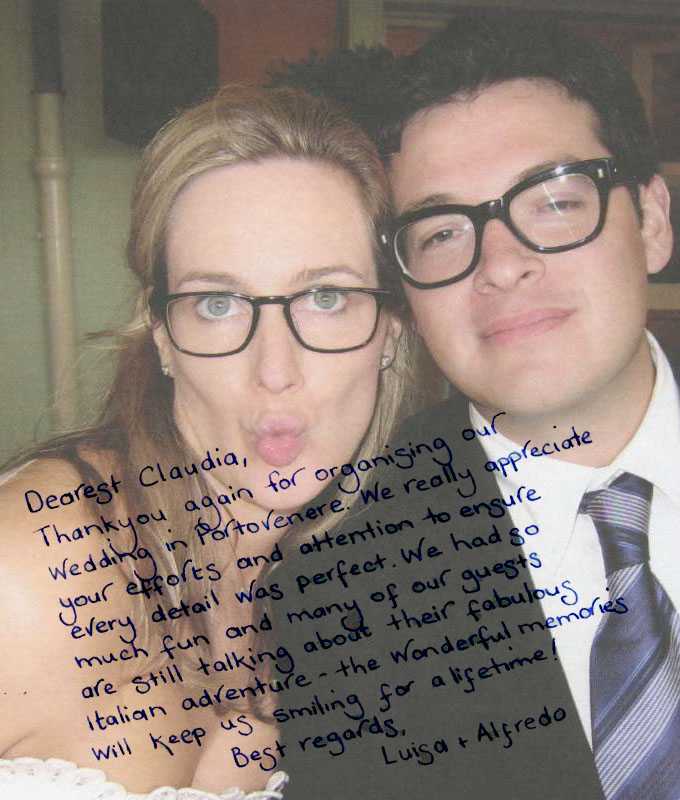 Dearest Claudia,
Thankyou again for organising our
wedding in Portovenere. We really appreciate
your efforts and attention to ensure
every detail was perfect. We had so
much fun and many of our guests
are still talking about their fabulous
Italian adventure - the wonderful memories
will keep us smiling for a lifetime!
Best regards,
Luisa + Alfredo